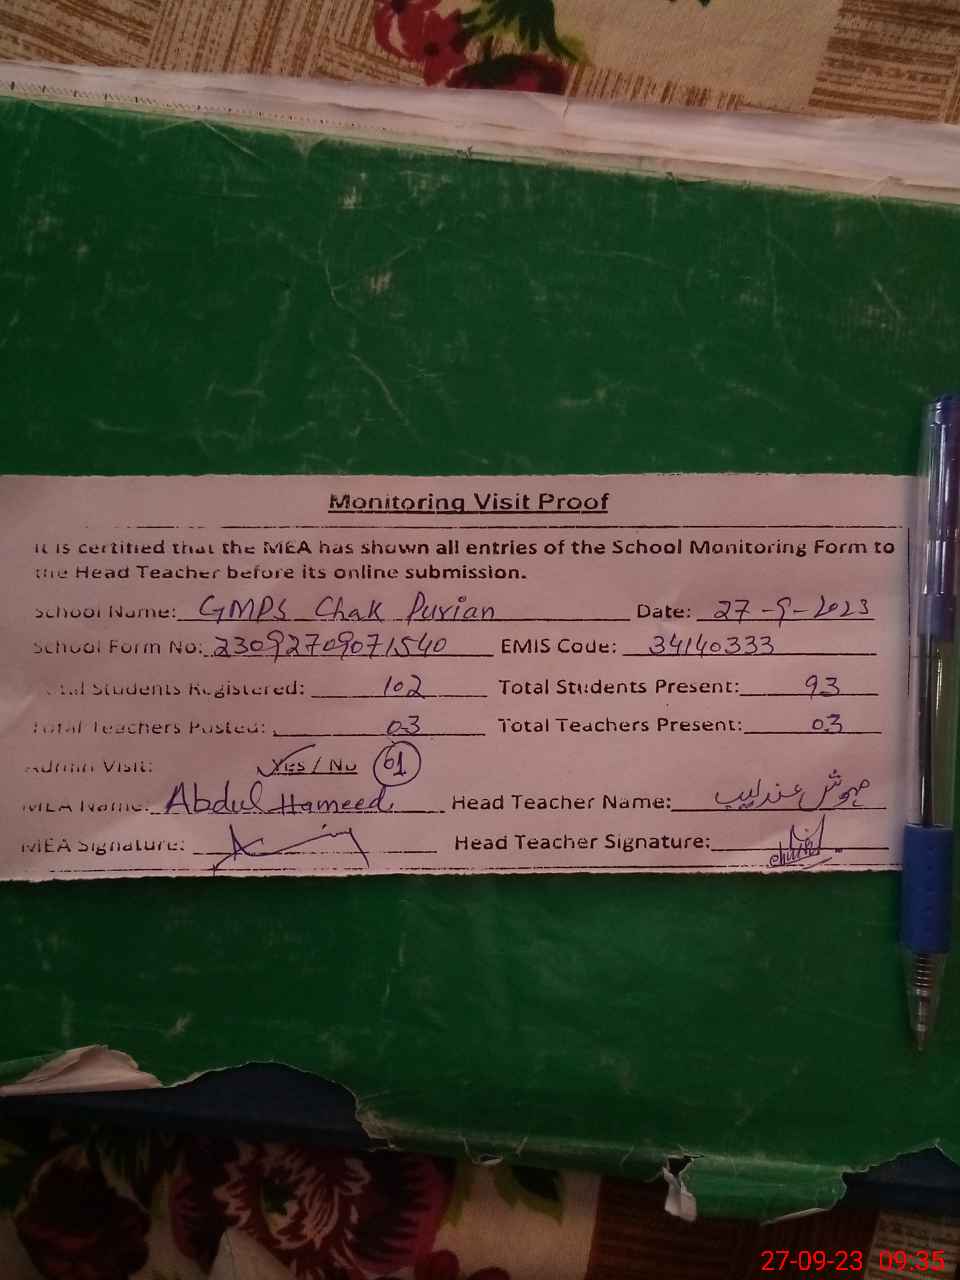 Monitoring Visit Proof
It is certified that the MEA has shown all entries of the School Monitoring Form to
the Head Teacher before its online submission.
School Name: GMPS Chak Purian Date: 27-9-2023
School Form No: 23092709071540 EMIS Code: 34140333
Total Students Registered: 102 Total Students Present: 93
Total Teachers Posted: 03 Total Teachers Present: 03
Admin Visit: Yes / No 61
MEA Name: Abdul Hameed Head Teacher Name: مہوش عندلیب
MEA Signature: Head Teacher Signature:
27-09-23 09:35